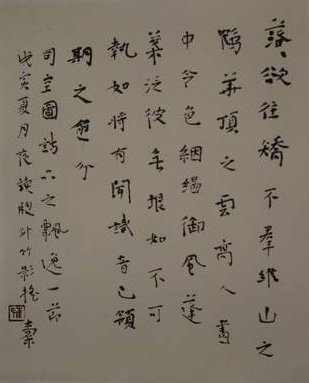 落々欲往矯不羣緱山之
鶴華頂之雲高人畫
中令色絪縕御風蓬
葉泛彼無垠如不可
執如將有聞識者已領
期之愈分
司空圖詩品之飄逸一節
戊寅夏月夜讀牕外竹影搖